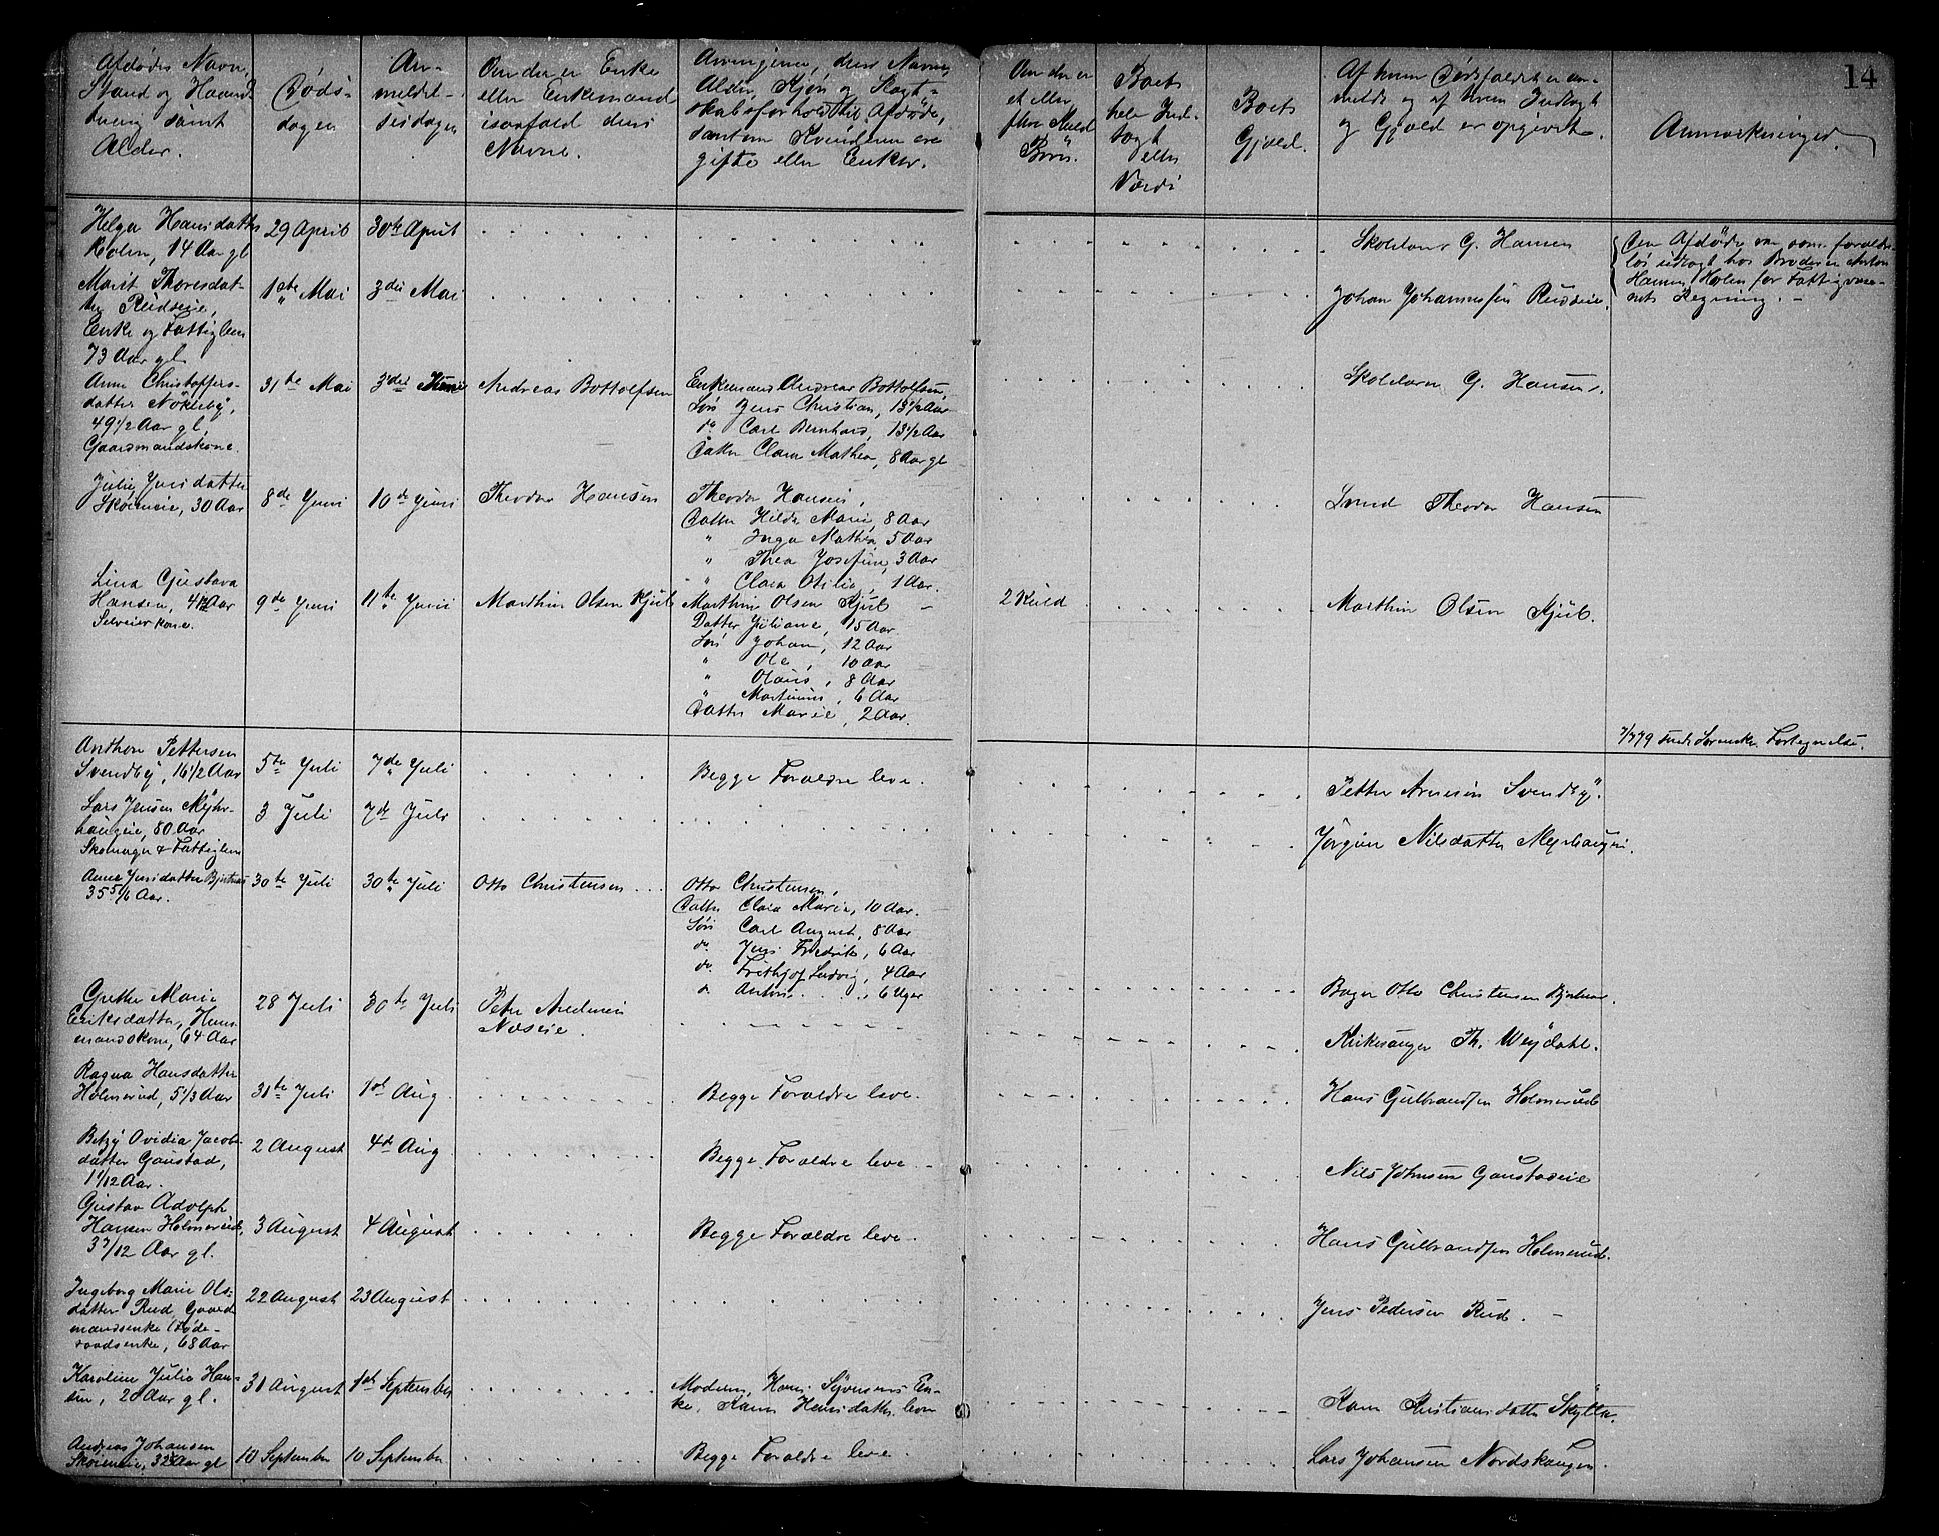 14
Afdødes Navn,
Stand og Haand-
tering samt
Alder.
Døds-
dagen
An-
meldel-
sesdagen
Om der er Enke
eller Enkemand
isaafald dens
Navne.
Arvingerne, deres Navne,
Alder, Kjøn og Slægt-
skabsforhold til Afdøde,
samt om Kvinderne ere
gifte eller Enker.
Om der er
et eller
flere Kuld
Børn.
Boets
hele Ind-
tægt
eller
Værdi
Boets
Gjæld.
Af hvem Dødsfaldet er an-
meldt og af hvem Indtægt
og Gjæld er opgivet.
Anmærkninger.
Helga Hansdatter
Holm, 14 Aar gl
29 April
30te April
Skolelærer G. Hansen
Den Afdøde var som foreldre-
løs udsat hos Broderen Anton
Hansen Holm for Fattigvæse-
nets Regning. -
Marit Thoresdat-
ter Rudseie,
Enke og Fattiglem
73 Aar gl
1ste Mai
3die Mai
Johan Johannessen Rudseie.
Anne Christoffers-
datter Nökleby,
49 1/2 Aar gl,
Gaardmandskone.
31te Mai
3die Juni
Andreas Bottolfsen
Enkemand Andreas Bottolfsen,
Søn Jens Christian, 15 1/2 Aar
do Carl Bernhard, 13 1/2 Aar
Datter Clara Mathea, 8 Aar gl
Skolelærer G. Hansen.
Julie Jensdatter
Skøieneie, 30 Aar
8de Juni
10de Juni
Theodor Hansen
Theodor Hansen,
Datter Hilda Marie, 8 Aar
" Inga Mathea, 5 Aar
" Thea Josefine, 3 Aar
" Clara Otilie, 1 Aar.
Svend Theodor Hansen
Lina Gustava
Hansen, 41 Aar
Selveierkone.
9de Juni
11te Juni
Marthin Olsen Kjul
Marthin Olsen Kjul -
Datter Juliane, 15 Aar.
Søn Johan, 12 Aar
" Ole, 10 Aar
" Olaus, 8 Aar
" Martinius, 6 Aar
Datter Marie, 2 Aar.
2 Kuld
Marthin Olsen Kjul.
Fortegnelse.
Anthon Pettersen
Svendby, 16 1/2 Aar
5te Juli
7de Juli
Begge Forældre leve.
Petter Arnesen Svendby.
Lars Jensen Myhr-
haugeie, 80 Aar
Skomager & Fattiglem
3 Juli
7de Juli
Jørgine Nilsdatter Myrhaugen.
Anne Jensdatter Bjerknes
35 5/6 Aar.
30te Juli
30te Juli
Otto Christensen
Otto Christensen,
Datter Clara Marie, 10 Aar.
Søn Carl August, 8 Aar
do. Jens Fredrik, 6 Aar
do. Frithjof Ludvig, 4 Aar
do. Anton 6 Uger
Bager Otto Christensen Bjerknes.
Grethe Marie
Eriksdatter, Hus-
mandskone, 64 Aar
28 Juli
30te Juli
Peter Andersen
Næseie.
Kirkesanger Th. Weydahl.
Ragna Hansdatter
Holmerud, 5 1/3 Aar
31te Juli
1ste Aug.
Begge Forældre leve.
Hans Gulbrandsen Holmerud
Betzy Ovidia Jacobs-
datter Gaustad,
1 1/12 Aar.
2 August
4de Aug.
Begge Forældre leve.
Nils Johnsen Gaustadeie
Gustav Adolph
Hansen Holmerud,
3 7/12 Aar gl.
3 August
4 August
Begge Forældre leve.
Hans Gulbrandsen Holmerud.
Ingeborg Marie Ols-
datter Rud, Gaard-
mandsenke (Føde-
raadsenke, 68 Aar
22 August
23 August
Jens Pedersen Rud. -
Karoline Julie Han-
sen, 20 Aar gl.
31 August
1ste September
Moderen, Hans Syversens En-
ke, Karen Hansdatter lever
Karen Kristiansdatter Skytta.
Andreas Johansen
Skøieneie, Aar gl
10 September
10 September
Begge Forældre leve.
Lars Johansen Nordskaugen.